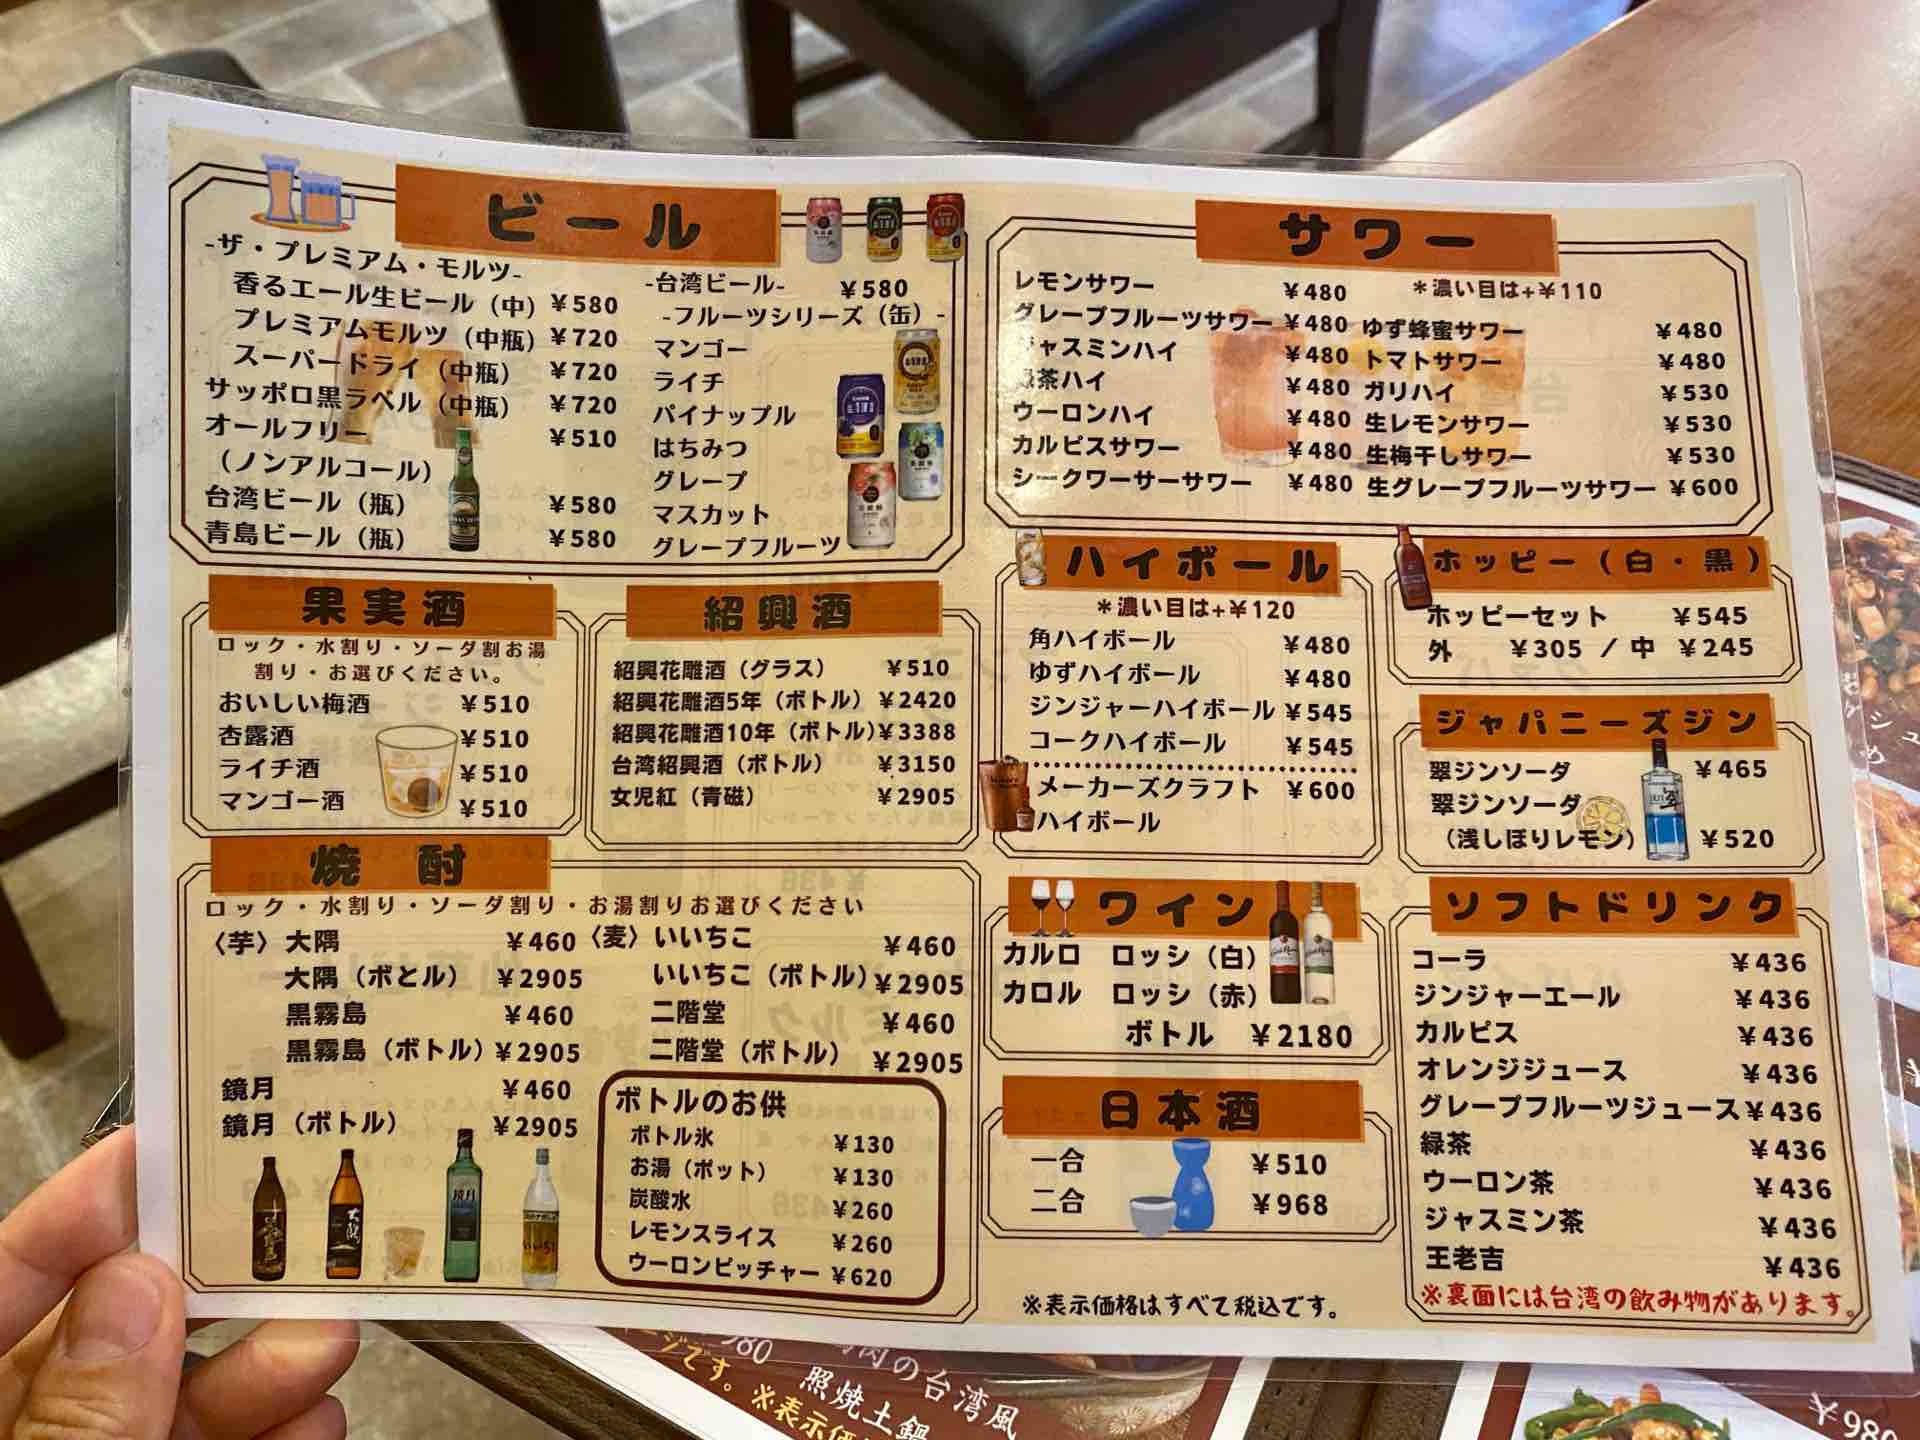 ビール
-ザ・プレミアム・モルツ-
香るエール生ビール（中）￥580
プレミアムモルツ（中瓶）￥720
スーパードライ（中瓶）￥720
サッポロ黒ラベル（中瓶）￥720
オールフリー ￥510
（ノンアルコール）
台湾ビール（瓶）￥580
青島ビール（瓶）￥580
-台湾ビール- ￥580
-フルーツシリーズ（缶）-
マンゴー
ライチ
パイナップル
はちみつ
グレープ
マスカット
グレープフルーツ
サワー
レモンサワー ￥480
＊濃い目は+￥110
グレープフルーツサワー ￥480
ャスミンハイ ￥480
茶ハイ ￥480
ウーロンハイ ￥480
カルピスサワー ￥480
シークワーサーサワー ￥480
ゆず蜂蜜サワー ￥480
トマトサワー ￥480
ガリハイ ￥530
生レモンサワー ￥530
生梅干しサワー ￥530
生グレープフルーツサワー ￥600
果実酒
ロック・水割り・ソーダ割お湯
割り・お選びください。
おいしい梅酒 ￥510
杏露酒 ￥510
ライチ酒 ￥510
マンゴー酒 ￥510
紹興酒
紹興花雕酒（グラス）￥510
紹興花雕酒5年（ボトル）￥2420
紹興花雕酒10年（ボトル）￥3388
台湾紹興酒（ボトル）￥3150
女児紅（青磁）￥2905
ハイボール
＊濃い目は+￥120
角ハイボール ￥480
ゆずハイボール ￥480
ジンジャーハイボール ￥545
コークハイボール ￥545
メーカーズクラフト ￥600
ハイボール
ホッピー（白・黒）
ホッピーセット ￥545
外 ￥305 / 中 ￥245
ジャパニーズジン
翠ジンソーダ ￥465
翠ジンソーダ
（浅しぼりレモン）￥520
焼酎
ロック・水割り・ソーダ割り・お湯割りお選びください
〈芋〉大隅 ￥460
大隅（ボとル）￥2905
黒霧島 ￥460
黒霧島（ボトル）￥2905
鏡月 ￥460
鏡月（ボトル）￥2905
〈麦〉いいちこ ￥460
いいちこ（ボトル）￥2905
二階堂 ￥460
二階堂（ボトル）￥2905
ボトルのお供
ボトル氷 ￥130
お湯（ポット）￥130
炭酸水 ￥260
レモンスライス ￥260
ウーロンピッチャー ￥620
ワイン
カルロ ロッシ（白）
カロル ロッシ（赤）
ボトル ￥2180
日本酒
一合 ￥510
二合 ￥968
※表示価格はすべて税込です。
ソフトドリンク
コーラ ￥436
ジンジャーエール ￥436
カルピス ￥436
オレンジジュース ￥436
グレープフルーツジュース ￥436
緑茶 ￥436
ウーロン茶 ￥436
ジャスミン茶 ￥436
王老吉 ￥436
※裏面には台湾の飲み物があります。
980
肉の台湾風
照焼土鍋
ージです。※表示価
￥980